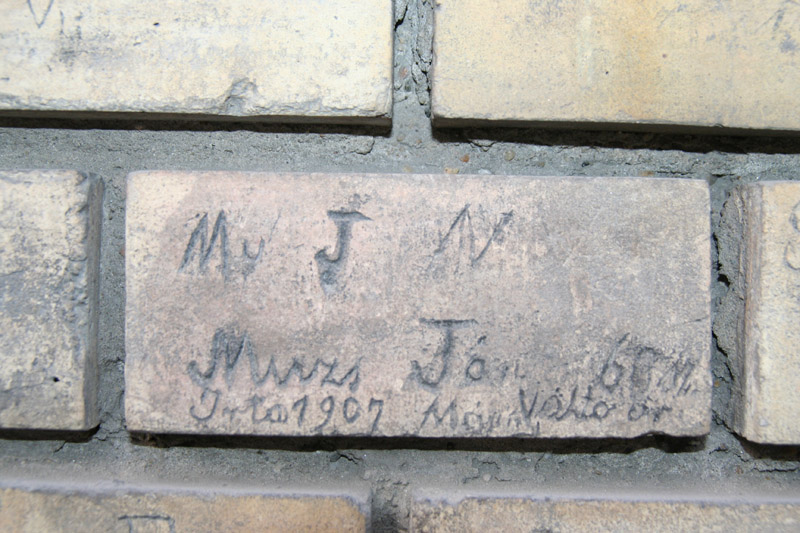 My J N
Murzs Ján 60
Irta 1907 Váltó őr